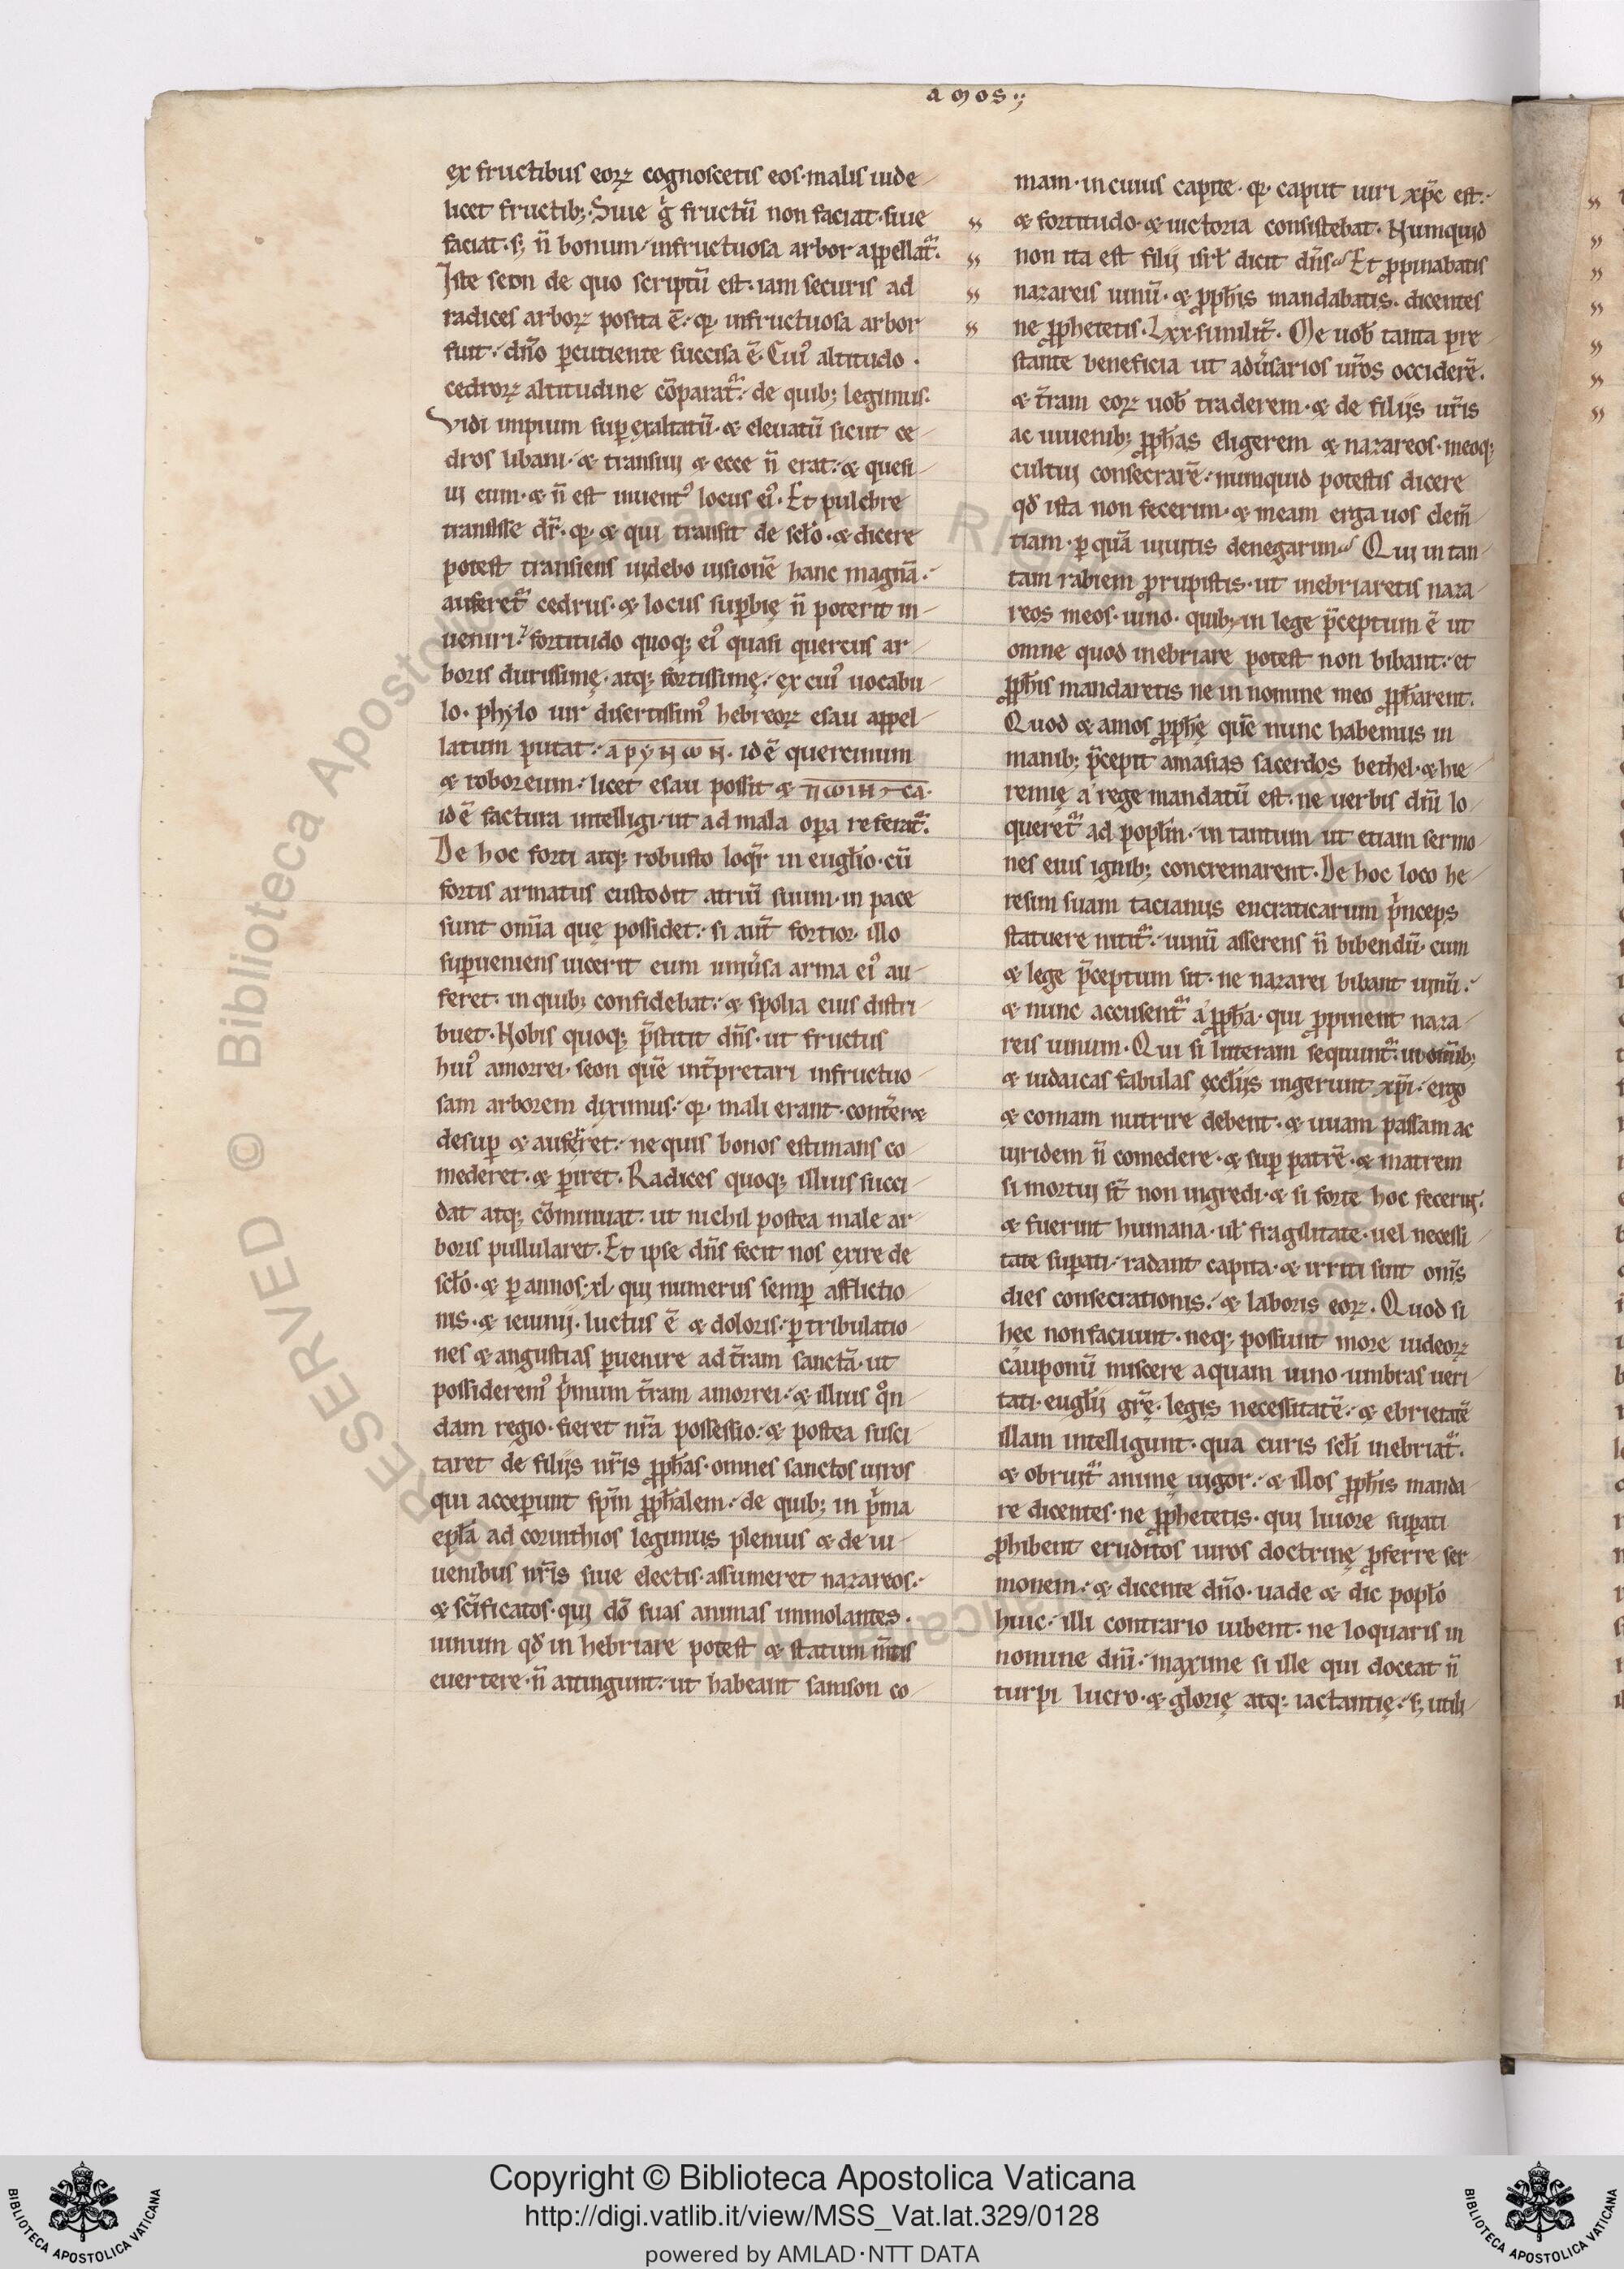 amos
ex fructibus eoꝝ cognoscetis eos. malis uide
licet fructib; Siue g̊ fructū non faciat. siue
faciat. s; n̄ bonum infructuosa arbor appellat᷑.
Iste seon de quo scriptū est. iam securis ad
radices arboꝝ posita ē. qꝛ infructuosa arbor
fuit. dño ꝑcutiente succisa ē. Cuiꝰ altitudo.
cedroꝝ altitudine cōparat᷑. de quib; legimus.
Vidi impium suꝑexaltatū. & eleuatū sicut ce
dros libani. & transiui & ecce n̄ erat. & quesi
ui eum. & n̄ est inuentꝰ locus eiꝰ. Et pulchre
transisse dr̄. qꝛ & qui transit de sclo. & dicere
potest transiens uidebo uisionē hanc magnā.
auferet᷑ cedrus. & locus suꝑbię n̄ poterit in
ueniri. fortitudo quoq; eiꝰ quasi quercus ar
boris durissimę. atq; fortissimę. ex cuiꝰ uocabu
lo. phylo uir disertissimꝰ hebreoꝝ esau appel
latum putat. id ē quercinum
& roboreum. licet esau possit &
id ē factura intelligi. ut ad mala oꝑa referat᷑.
De hoc forti atq; robusto loqr̄ in euglio. cū
fortis armatus custodit atriū suum. in pace
sunt omīa quę possidet. si aut̄ fortior illo
suꝑueniens uicerit eum uniũsa arma eiꝰ au
feret. in quib; confidebat. & spolia eius distri
buet. Nobis quoq; p̄stitit dñs. ut fructus
huiꝰ amorrei. seon quē int̄pretari infructuo
sam arborem diximus. qꝛ mali erant. cont̄ere
desuꝑ & auferret. ne quis bonos estimans co
mederet. & ꝑiret. Radices quoq; illius succi
dat atq; cōminuat. ut nichil postea male ar
boris pullularet. Et ipse dñs fecit nos exire de
sclo. & ꝑ annos. xl. qui numerus semꝑ afflictio
nis. & ieiunij. luctus ē & doloris. ꝑ tribulatio
nes & angustias ꝑuenire ad t̄ram sanctā. ut
possideremꝰ p̄mum t̄ram amorrei. & illius qn̊
dam regio. fieret nr̄a possessio. & postea susci
taret de filijs nr̄is ꝓphas. omnes sanctos uiros
qui acceꝑunt spm̄ ꝓphalem. de quib; in p̄ma
epla ad corinthios legimus plenius & de iu
uenibus nr̄is siue electis. assumeret nazareos.
& scīficatos. qui dō suas animas immolantes.
uinum qd̄ in hebriare potest & statum m̄tis
euertere. n̄ attingunt. ut habeant samson co
mam. in cuius capite. qꝛ caput uiri xp̄c est.
& fortitudo. & uictoria consistebat. Numquid
non ita est filij isrl̄ dicit dñs Et ꝓpinabatis
nazareis uinū. & ꝓphis mandabatis. dicentes
ne ꝓphetetis. Lxx. similit̄. Me uob̄ tanta pre
stante beneficia ut adũsarios ur̄os occiderē.
& t̄ram eoꝝ uob̄ traderem. & de filijs ur̄is
ac iuuenib; ꝓphas eligerem & nazareos. meoq;
cultui consecrarē. numquid potestis dicere
qd̄ ista non fecerim. & meam erga uos clem̄
tiam. ꝑ quā uiuitis denegarim Qui in tan
tam rabiem ꝓrupistis. ut inebriaretis naza
reos meos. uino. quib; in lege p̄ceptum ē ut
omne quod inebriare potest non bibant. et
ꝓphis mandaretis ne in nomine meo ꝓpharent.
Quod & amos ꝓphę quē nunc habemus in
manib; p̄cepit amasias sacerdos bethel. & hie
remię a rege mandatū est. ne uerbis dnī lo
queret᷑ ad poplm. in tantum ut etiam sermo
nes eius ignib; concremarent. De hoc loco he
resim suam tacianus encraticarum p̄nceps
statuere nitit᷑. uinū asserens n̄ bibendū. cum
& lege p̄ceptum sit. ne nazarei bibant uinū.
& nunc accusent᷑ a ꝓpha. qui ꝓpinent naza
reis uinum. Qui si litteram sequunt᷑. in omīb;
& iudaicas fabulas ęccliis ingerunt xp̄i. ergo
& comam nutrire debent. & uuam passam ac
uiridem n̄ comedere. & suꝑ patrē. & matrem
si mortui st̄ non ingredi. & si forte hoc fecerin̄.
& fuerint humana. ul̄ fragilitate. uel necessi
tate suꝑati. radant capita. & irriti sint omīs
dies consecrationis. & laboris eoꝝ. Quod si
hęc non faciunt. neq; possunt more iudeoꝝ
cauponū miscere aquam uino. umbras ueri
tati. euglij grē. legis necessitatē. & ebrietatē
illam intelligunt. qua curis scli inebriat᷑.
& obruit᷑ animę uigor. & illos ꝓphis manda
re dicentes. ne ꝓphetetis. qui liuore suꝑati
ꝓhibent eruditos uiros doctrinę ꝓferre ser
monem. & dicente dño. uade & dic poplo
huic. illi contrario iubent. ne loquaris in
nomine dnī. maxime si ille qui doceat n̄
turpi lucro. & glorię atq; iactantię. s; utili
RIGHTS RESERVED © Biblioteca Apostolica Vaticana
Copyright © Biblioteca Apostolica Vaticana
http://digi.vatlib.it/view/MSS_Vat.lat.329/0128
powered by AMLAD·NTT DATA
BIBLIOTECA APOSTOLICA VATICANA
BIBLIOTECA APOSTOLICA VATICANA